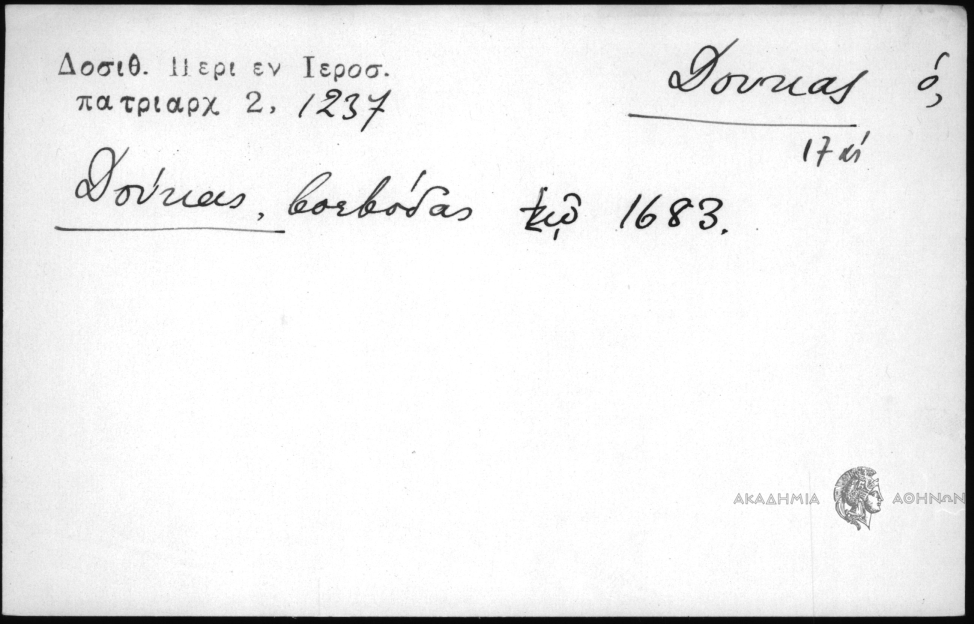 Δοσιθ. Περι εν Ιεροσ.
πατριαρχ 2, 1237
Δουκας ὁ,
17
Δούκας, βοεβόδας τῷ 1683.
ΑΚΑΔΗΜΙΑ ΑΘΗΝΩΝ